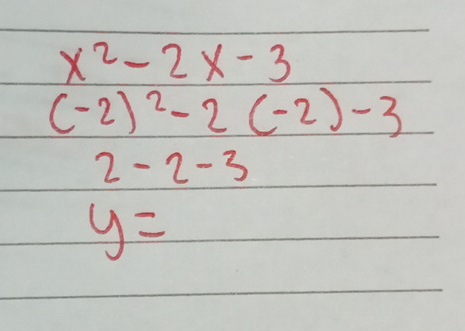 x² - 2x - 3
(-2)² - 2 (-2) - 3
2 - 2 - 3
y =